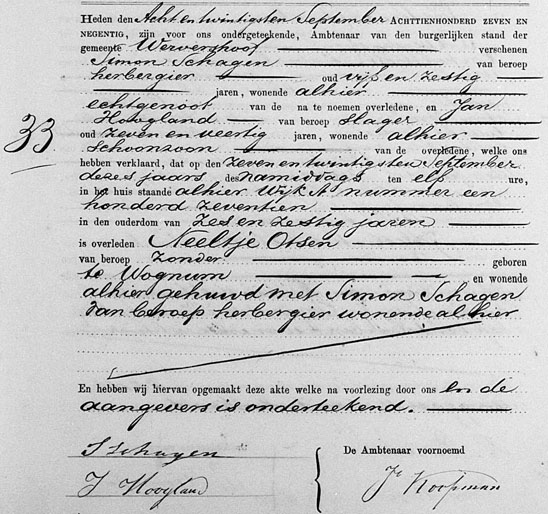 Heden den Acht en twintigsten September ACHTTIENHONDERD ZEVEN EN
NEGENTIG, zijn voor ons ondergeteekende, Ambtenaar van den burgerlijken stand der
gemeente Wervershoof verschenen
Simon Schagen van beroep
herbergier oud vijf en zestig
jaren, wonende alhier
echtgenoot van de na te noemen overledene, en Jan
Hoogland van beroep slager
oud zeven en veertig jaren, wonende alhier
schoonzoon van de overledene, welke ons
33
hebben verklaard, dat op den zeven en twintigsten September
dezes jaars des namiddags ten elf ure,
in het huis staande alhier Wijk A nummer een
honderd zeventien
in den ouderdom van zes en zestig jaren
is overleden Neeltje Otsen
van beroep zonder geboren
te Wognum en wonende
alhier gehuwd met Simon Schagen
van beroep herbergier wonende alhier
En hebben wij hiervan opgemaakt deze akte welke na voorlezing door ons en de
aangevers is onderteekend.
S Schagen
De Ambtenaar voornoemd
J Hoogland
Js Koopman